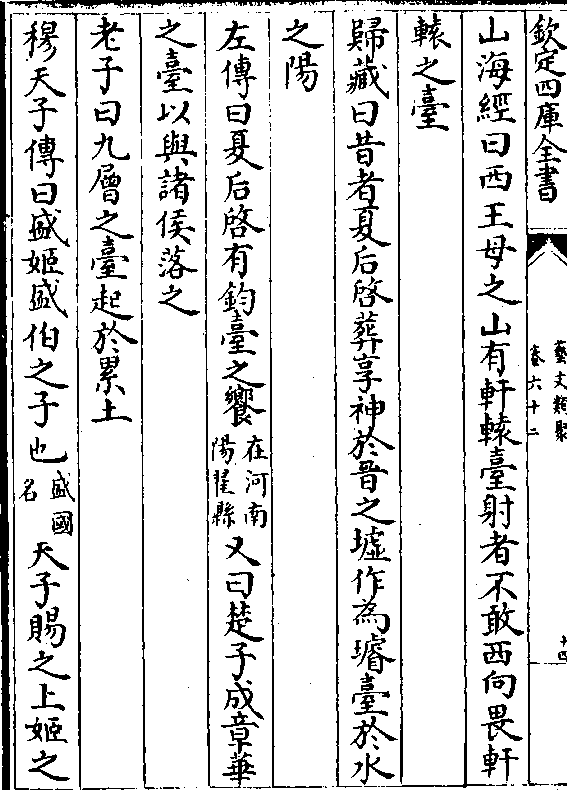 欽定四庫全書
藝文類聚
卷六十二
十四
山海經曰西王母之山有軒轅臺射者不敢西向畏軒
轅之臺
歸藏曰昔者夏后啓葬享神於晉之墟作為璿臺於水
之陽
左傳曰夏后啓有鈞臺之饗在河南陽翟縣又曰楚子成章華
之臺以與諸侯落之
老子曰九層之臺起於累土
穆天子傳曰盛姬盛伯之子也盛國名天子賜之上姬之